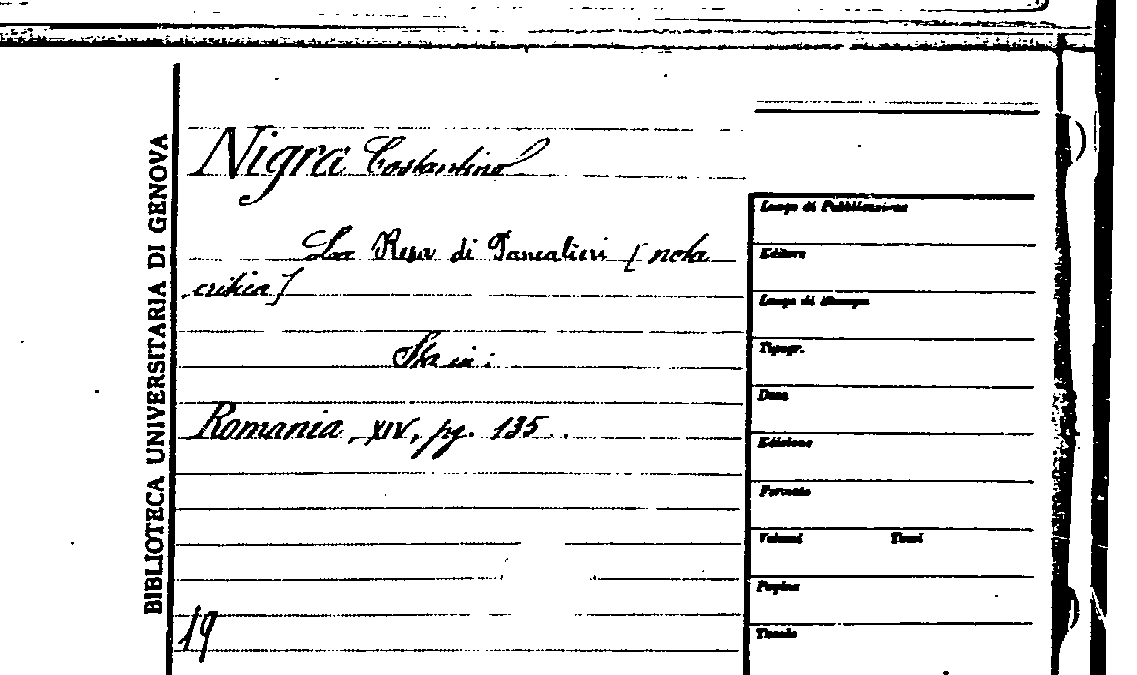 BIBLIOTECA UNIVERSITARIA DI GENOVA
Nigra Costantino
La Resa di Pancalieri [nota
critica]
Sta in:
Romania, XIV, pg. 135.
19
Luogo di Pubblicazione
Editore
Luogo di Stampa
Tipogr.
Data
Edizione
Formato
Volumi Tomi
Pagine